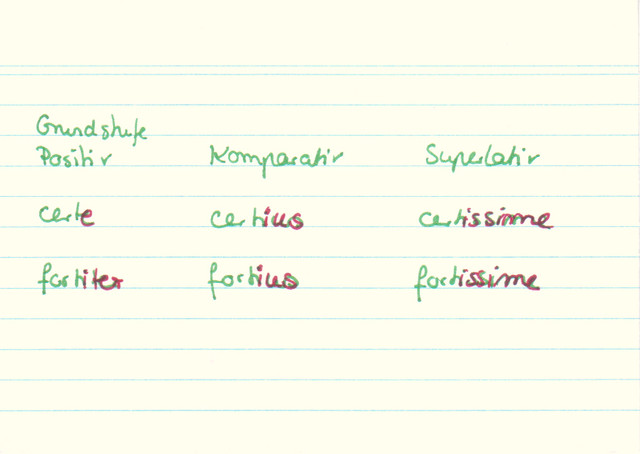 Grundstufe
Positiv Komparativ Superlativ
certe certius certissime
fortiter fortius fortissime